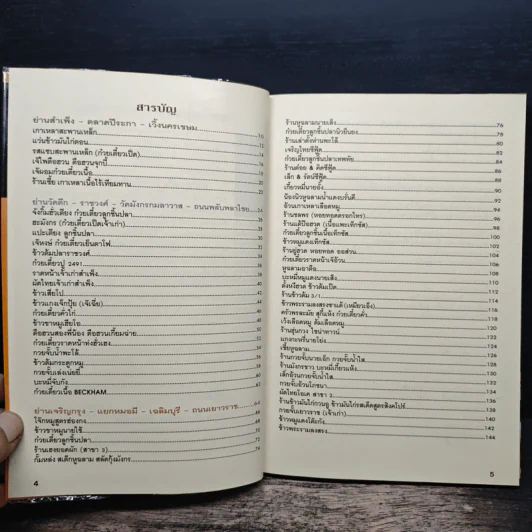 สารบัญ
ย่านสำเพ็ง - ตลาดปีระกา - เวิ้งนครเขษม
เกาเหลาสะพานเหล็ก 10
แว่นข้าวมันไก่ตอน 12
รสแซบสะพานเหล็ก (ก๋วยเตี๋ยวเป็ด) 14
เจ๊ไพคือฮวน คือฮวนจุกนี้ 16
เจ๊ผอมก๋วยเตี๋ยวเนื้อ 20
ร้านเซี้ย เกาเหลาเนื้อไร้เทียมทาน 22
ย่านวัดตึก - ราชวงศ์ - วัดมังกรกมลาวาส - ถนนพลับพลาไชย 24
จั๊งกี่มฮั่วเตียง ก๋วยเตี๋ยวลูกชิ้นปลา
ฮะมังกร (ก๋วยเตี๋ยวเป็ดเจ้าเก่า)
แปะเตียง ลูกชิ้นปลา
เจ๊หงษ์ ก๋วยเตี๋ยวเย็นตาโฟ
ข้าวต้มปลาราชวงศ์
ก๋วยเตี๋ยวปู 2491
ราดหน้าเจ้าเก่าสำเพ็ง
ผัดไทยเจ้าเก่าสำเพ็ง
ข้าวเสียโป
ข้าวแกงเจ๊กปุ้ย (เจ๊เฉี่ย)
ก๋วยเตี๋ยวคั่วไก่
ข้าวขาหมูเฮียโอ
คือฮวนสองพี่น้อง คือฮวนเกี่ยมฉ่าย
ก๋วยเตี๋ยวราดหน้าท่งฮั่วเฮง
ก๋วยจั๊บน้ำพะโล้
ข้าวต้มกระดูกหมู
ก๋วยจั๊บเล่งเน่ยยี่
บะหมี่จับกัง
ก๋วยเตี๋ยวเนื้อ BECKHAM
ย่านเจริญกรุง - แยกหมอมี - เฉลิมบุรี - ถนนเยาวราช 64
โจ๊กหมูสูตรฮ่องกง
ข้าวขาหมูนายใช้
ก๋วยเตี๋ยวลูกชิ้นปลา
ร้านเฮงยอดผัก (สาขา 3)
กั้มหล่ง สเต็กหูฉลาม สลัดกุ้งมังกร
4
ร้านหูฉลามนายเส็ง 76
ก๋วยเตี๋ยวลูกชิ้นปลานิวยืนยง 78
ร้านเล่าตั้งห่านพะโล้ 80
เจริญไทยซีฟู้ด 82
ก๋วยเตี๋ยวลูกชิ้นปลาเทพทัย 84
ร้านต๋อย & คิดซีฟู้ด 86
เล็ก & รัตน์ซีฟู้ด 88
เกี๊ยวหมี่นายอั้ง 90
น้องนิวหูฉลามน้ำแดงบรั่นดี
ร้านเกาเหลาเลือดหมู 94
ร้านชลพร (หอยทอดตรอกโทร) 96
ร้านแต้ป้อฮวด (เนื้อแพะเท็กซัส) 98
ก๋วยเตี๋ยวลูกชิ้นเนื้อเท็กซัส 100
ข้าวหมูแดงเท็กซัส 102
ร้านยู่ฮวด หอยทอด ออส่วน
ก๋วยเตี๋ยวราดหน้าเจ๊อ้วน 106
หูฉลามอาตือ 108
บะหมี่หมูแดงนายเส็ง 110
ตั้งหงี่ฮวด ข้าวต้มเป็ด 112
ร้านข้าวต้ม 3/1 114
ข้าวพระรามลงสรงชาแต๊(เหมียวเล้ง) 116
ครัวพรละมัย สุกี้แห้ง ก๋วยเตี๋ยวคั่ว 118
เว้งเลือดหมู ต้มเลือดหมู 120
ร้านฮุ่นกวง โจ๊กนำทาวน์ 122
แกงกะหรี่นายโย่ง 124
เชี้ยหูฉลาม
ร้านก๋วยจั๊บนายเอ็ก ก๋วยจั๊บน้ำใส
ร้านมังกรขาว บะหมี่เกี๊ยวแห้ง 130
เล็กอ้วนก๋วยจั๊บน้ำใส 132
ก๋วยจั๊บอ้วนโภชนา 134
ผัดไทยโอเค สาขา 2 136
ร้านข้าวมันไก่กวนอู ข้าวมันไก่รสเด็ดสูตรสิงคโปร์ 138
ก๋วยจั๊บเยาวราช (เจ้าเก่า) 140
ข้าวหมูแดงโต๊ะกัง 142
ข้าวพระรามลงสรง 144
5